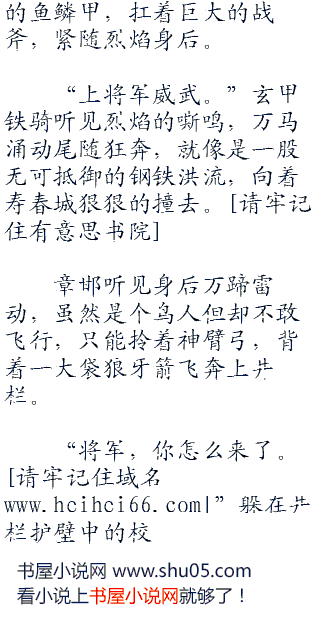 的鱼鳞甲，扛着巨大的战
斧，紧随烈焰身后。
“上将军威武。”玄甲
铁骑听见烈焰的嘶鸣，万马
涌动尾随狂奔，就像是一股
无可抵御的钢铁洪流，向着
寿春城狠狠的撞去。[请牢记
住有意思书院]
章邯听见身后万蹄雷
动，虽然是个鸟人但却不敢
飞行，只能拎着神臂弓，背
着一大袋狼牙箭飞奔上井
栏。
“将军，你怎么来了。
[请牢记住域名
www.hcihci66.com|”躲在井
栏护壁中的校
书屋小说网 www.shu05.com
看小说上书屋小说网就够了！